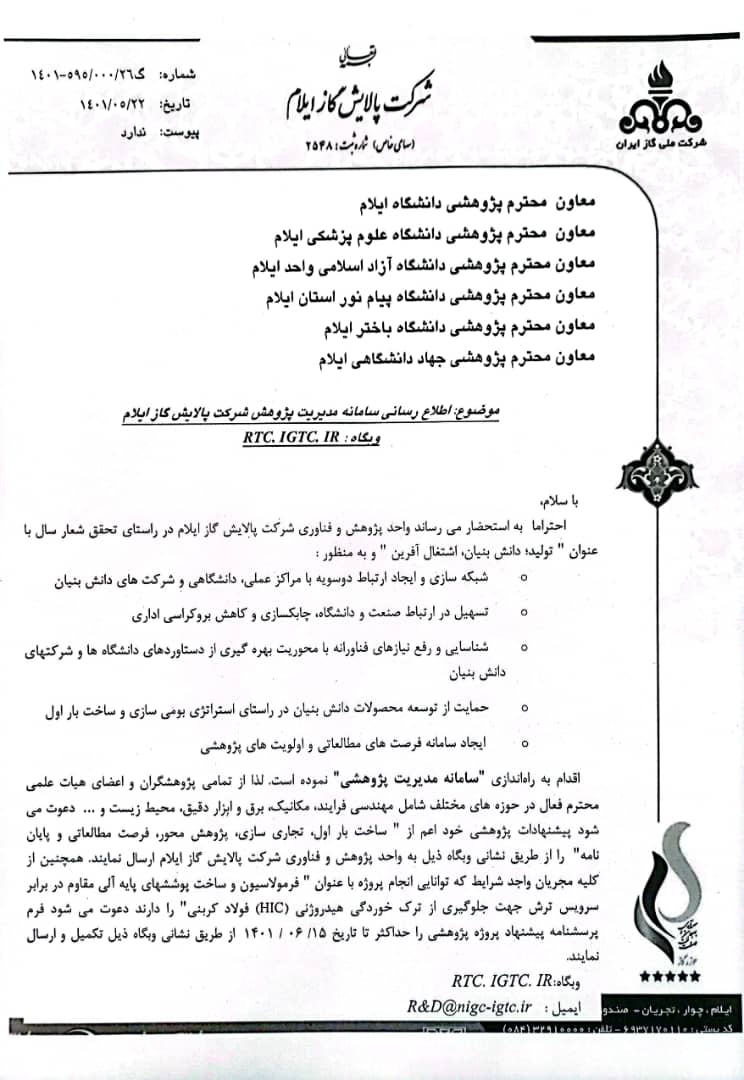 بسمه تعالی
شرکت پالایش گاز ایلام
(سهامی خاص) شماره ثبت: ۲۵۴۸
شماره: گ۲۶/۰۰۰/۵۹۵-۱۴۰۱
تاریخ: ۱۴۰۱/۰۵/۲۲
پیوست: ندارد
شرکت ملی گاز ایران
معاون محترم پژوهشی دانشگاه ایلام
معاون محترم پژوهشی دانشگاه علوم پزشکی ایلام
معاون محترم پژوهشی دانشگاه آزاد اسلامی واحد ایلام
معاون محترم پژوهشی دانشگاه پیام نور استان ایلام
معاون محترم پژوهشی دانشگاه باختر ایلام
معاون محترم پژوهشی جهاد دانشگاهی ایلام
موضوع: اطلاع رسانی سامانه مدیریت پژوهش شرکت پالایش گاز ایلام
وبگاه : RTC. IGTC. IR
با سلام،
احتراما به استحضار می رساند واحد پژوهش و فناوری شرکت پالایش گاز ایلام در راستای تحقق شعار سال با
عنوان " تولید؛ دانش بنیان، اشتغال آفرین " و به منظور :
○ شبکه سازی و ایجاد ارتباط دوسویه با مراکز عملی، دانشگاهی و شرکت های دانش بنیان
○ تسهیل در ارتباط صنعت و دانشگاه، چابکسازی و کاهش بروکراسی اداری
○ شناسایی و رفع نیازهای فناورانه با محوریت بهره گیری از دستاوردهای دانشگاه ها و شرکتهای
دانش بنیان
○ حمایت از توسعه محصولات دانش بنیان در راستای استراتژی بومی سازی و ساخت بار اول
○ ایجاد سامانه فرصت های مطالعاتی و اولویت های پژوهشی
اقدام به راه‌اندازی "سامانه مدیریت پژوهشی" نموده است. لذا از تمامی پژوهشگران و اعضای هیات علمی
محترم فعال در حوزه های مختلف شامل مهندسی فرایند، مکانیک، برق و ابزار دقیق، محیط زیست و ... دعوت می
شود پیشنهادات پژوهشی خود اعم از " ساخت بار اول، تجاری سازی، پژوهش محور، فرصت مطالعاتی و پایان
نامه" را از طریق نشانی وبگاه ذیل به واحد پژوهش و فناوری شرکت پالایش گاز ایلام ارسال نمایند. همچنین از
کلیه مجریان واجد شرایط که توانایی انجام پروژه با عنوان " فرمولاسیون و ساخت پوششهای پایه آلی مقاوم در برابر
سرویس ترش جهت جلوگیری از ترک خوردگی هیدروژنی (HIC) فولاد کربنی" را دارند دعوت می شود فرم
پرسشنامه پیشنهاد پروژه پژوهشی را حداکثر تا تاریخ ۱۵/ ۰۶ / ۱۴۰۱ از طریق نشانی وبگاه ذیل تکمیل و ارسال
نمایند.
وبگاه:RTC. IGTC. IR
ایمیل : R&D@nigc-igtc.ir
ایلام ، چوار ، تجریان - صندو
کد پستی : ۶۹۳۷۱۷۰۱۱۰ - تلفن : ۳۲۹۱۰۰۰۰ (۰۸۴)